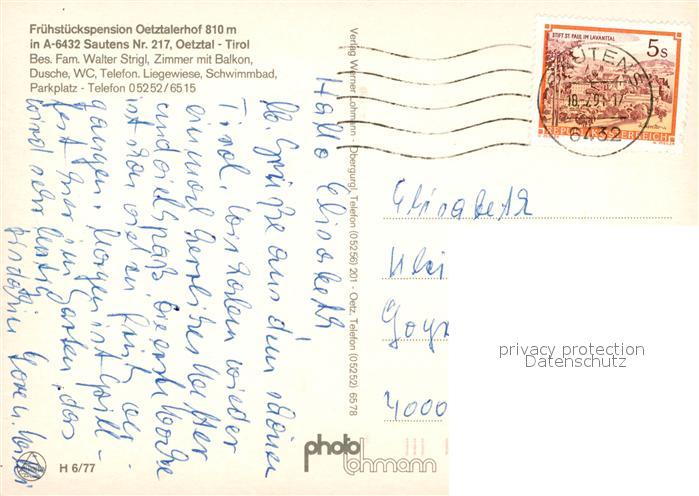 Frühstückspension Oetztalerhof 810 m
in A-6432 Sautens Nr. 217, Oetztal - Tirol
Bes. Fam. Walter Strigl, Zimmer mit Balkon,
Dusche, WC, Telefon. Liegewiese, Schwimmbad,
Parkplatz - Telefon 05252/6515
Hallo Elisabeth
lb. Grüße aus dem schönen
Tirol. Wir haben wieder
einmal herrliches Wetter
und viel Spaß. Die erste Woche
ist schon viel zu früh ver-
gangen. Morgen ist Grill-
fest hier im Garten, das
wird sehr lustig
Verlag Werner Lohmann - Obergurgl, Telefon (05256) 201 - Oetz, Telefon (05252) 6578
STIFT ST. PAUL IM LAVANTTAL
5s
REPUBLIK ÖSTERREICH
6432
Elisabeth
4000
privacy protection
Datenschutz
photo
lohmann
H 6/77